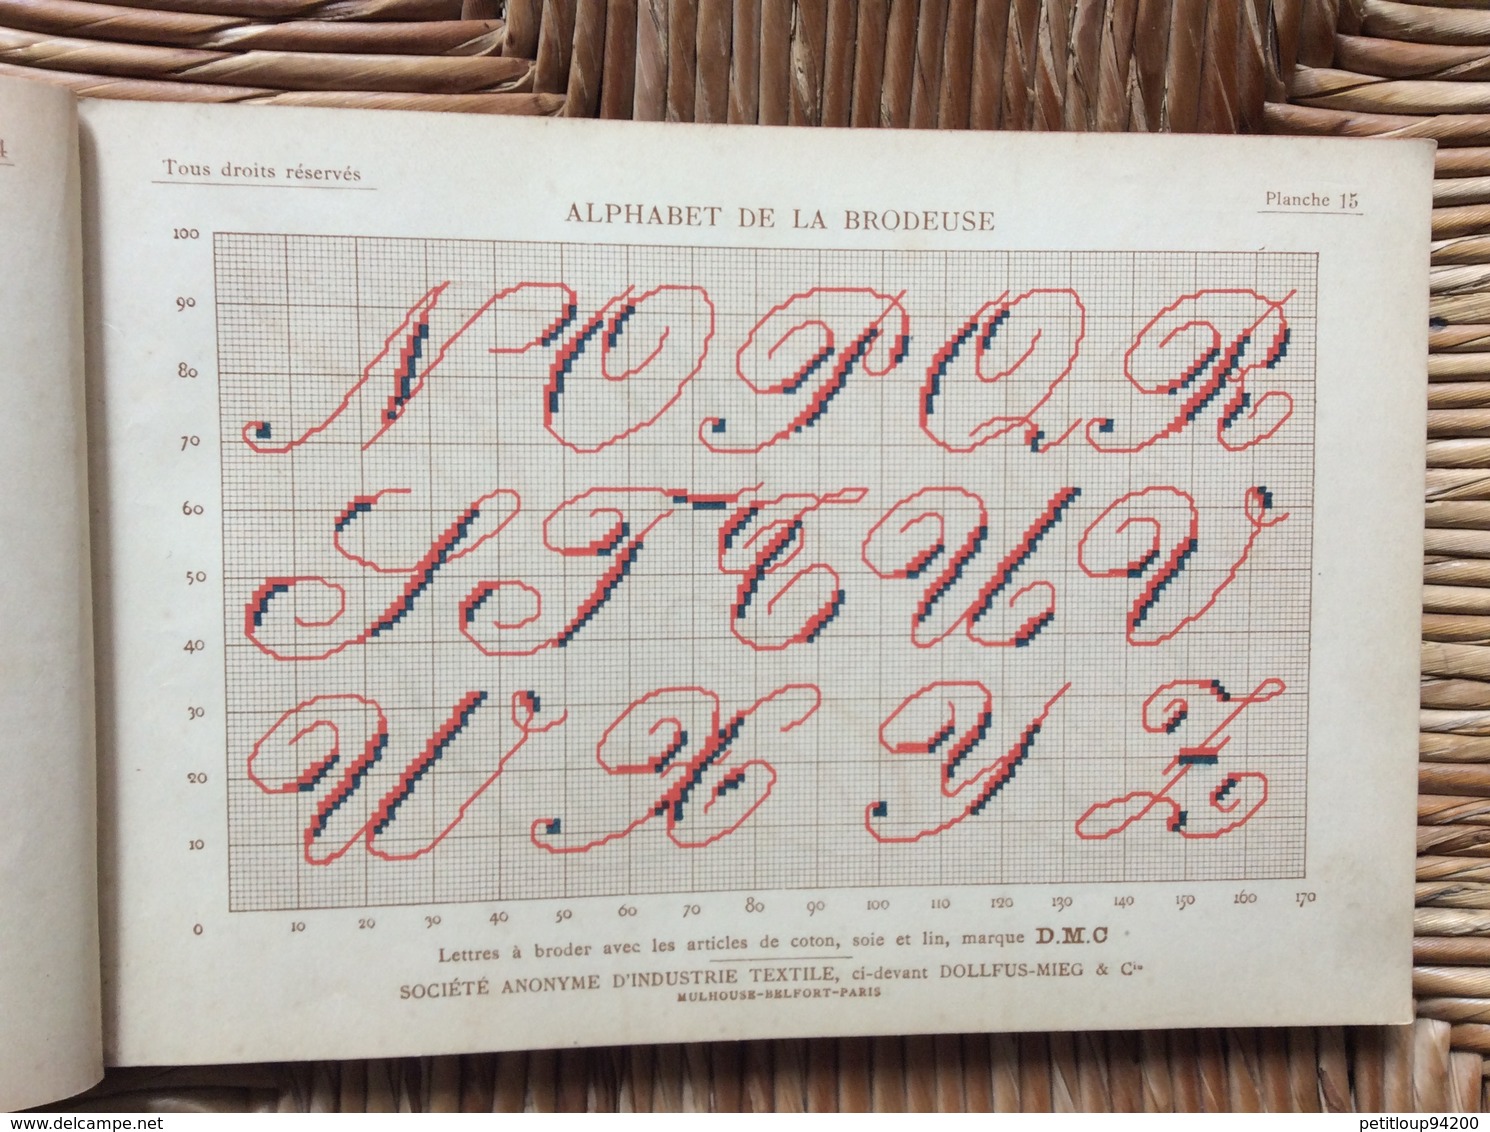 4
Tous droits réservés
Planche 15
ALPHABET DE LA BRODEUSE
100
90
80
70
60
50
40
30
20
10
0
N O P Q R
S T T U V
W X Y Z
10 20 30 40 50 60 70 80 90 100 110 120 130 140 150 160 170
Lettres à broder avec les articles de coton, soie et lin, marque D.M.C
SOCIÉTÉ ANONYME D'INDUSTRIE TEXTILE, ci-devant DOLLFUS-MIEG & Cie
MULHOUSE-BELFORT-PARIS
delcampe.net
petitloup94200